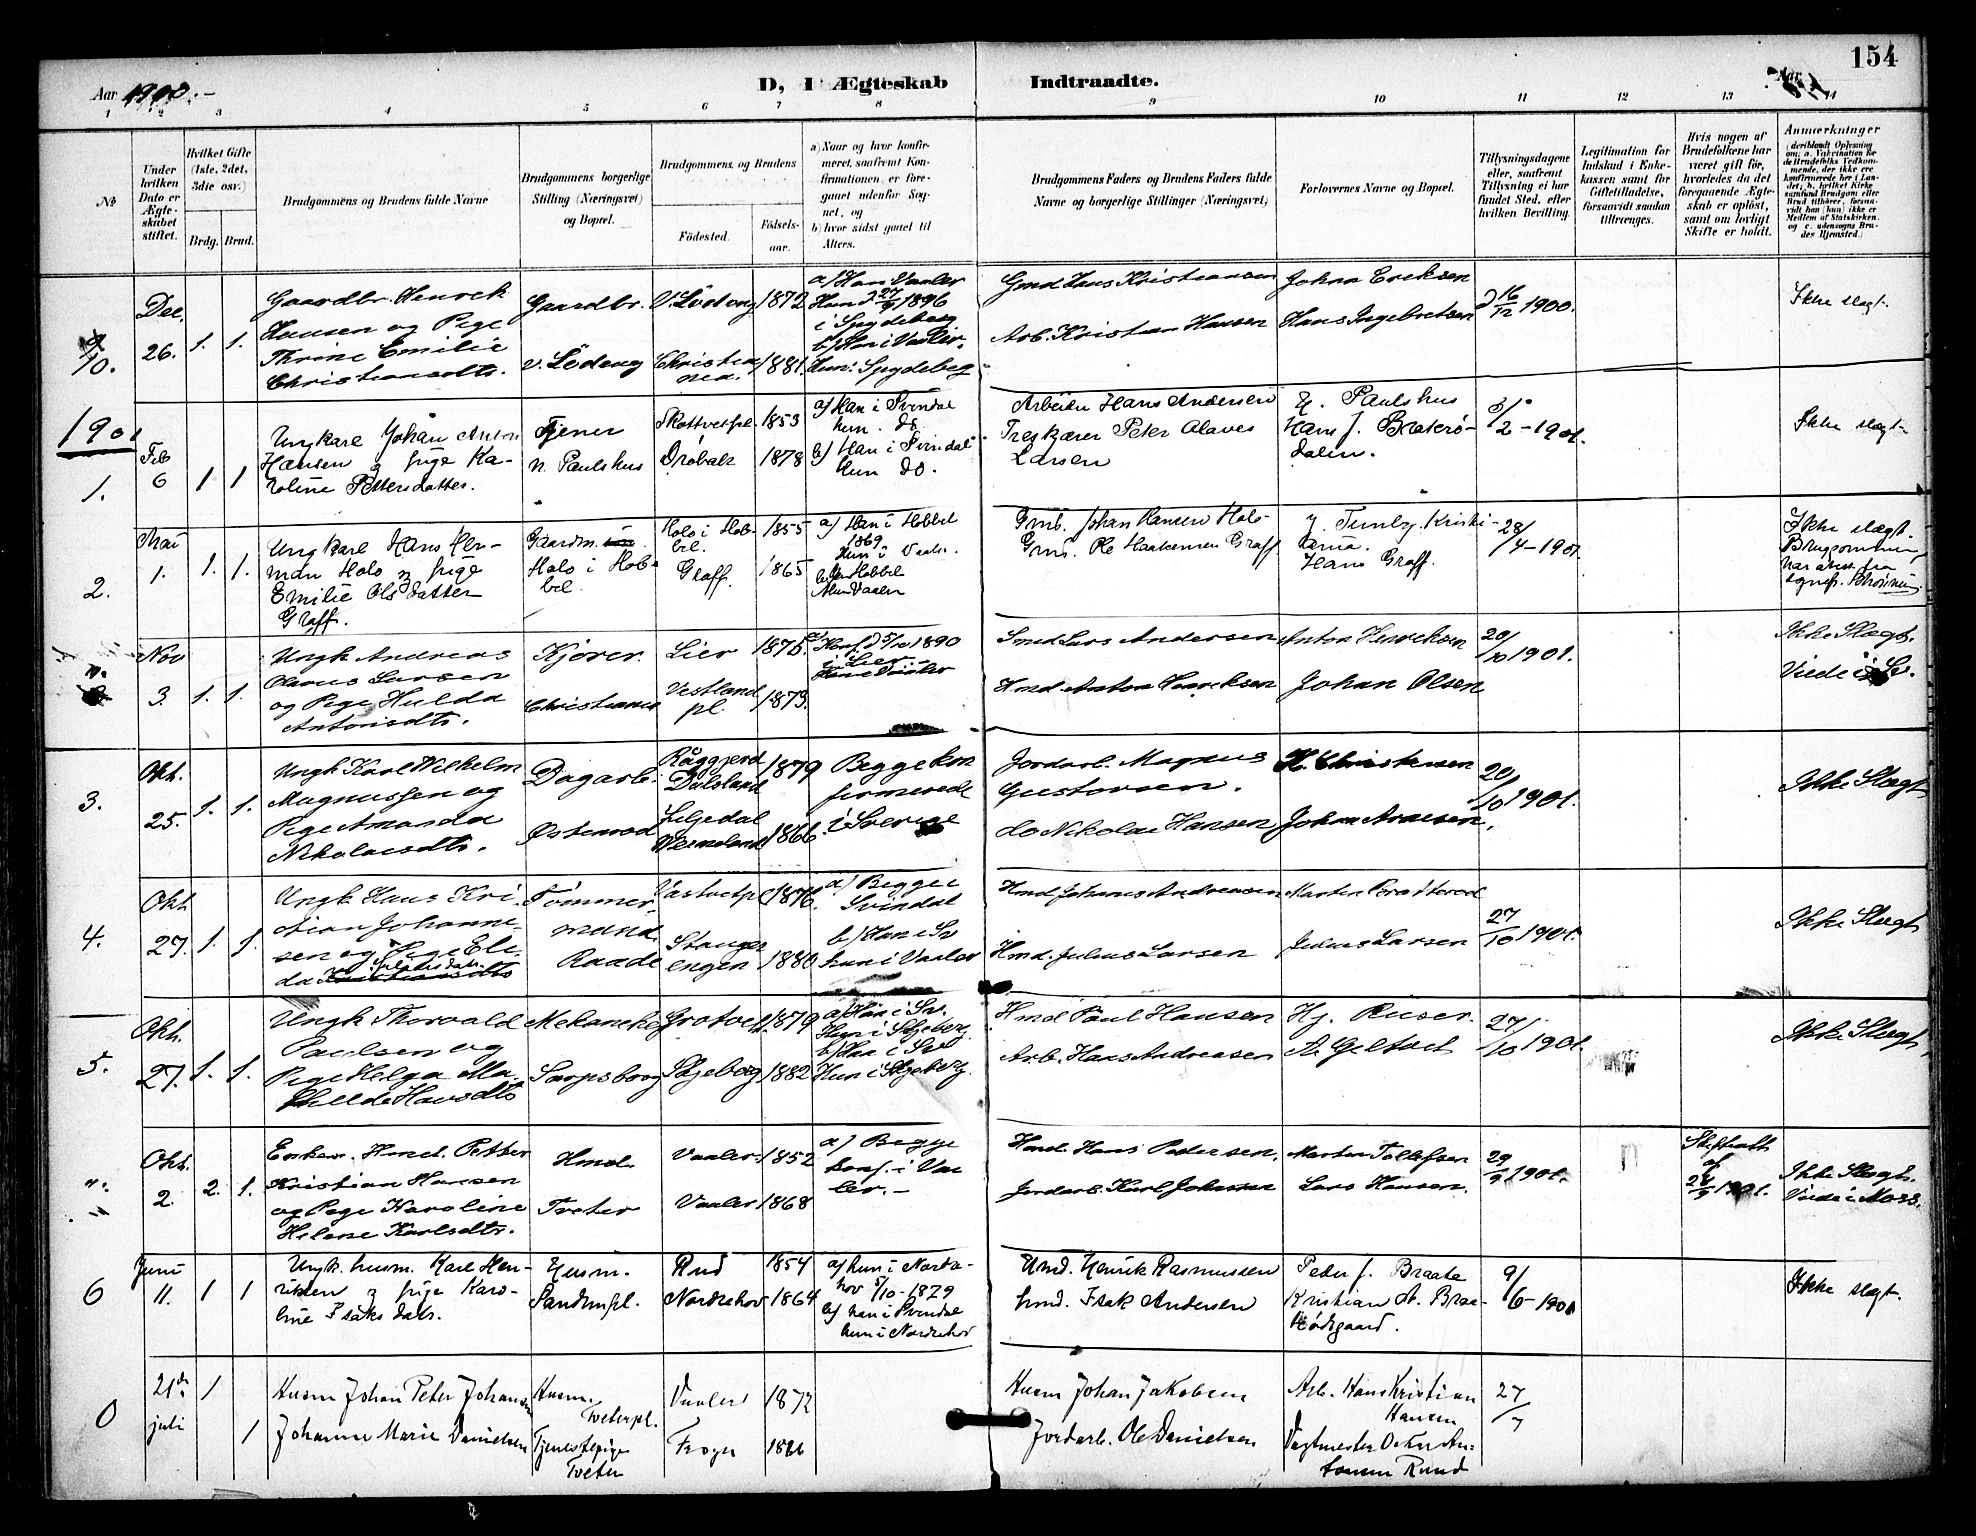 154
Aar 1900.-
D, I Ægteskab Indtraadte.
Aar
1 2 3 4 5 6 7 8 9 10 11 12 13 14
No
Under hvilken Dato er Ægteskabet stiftet.
Hvilket Gifte (1ste, 2det, 3die osv.)
Brdg. Brud.
Brudgommens og Brudens fulde Navne
Brudgommens borgerlige Stilling (Næringsvei) og Bopæl.
Brudgommens og Brudens
Fødested.
Fødselsaar.
a) Naar og hvor konfirmeret, saafremt Konfirmationen er foregaaet udenfor Sognet, og
b) hvor sidst gaaet til Alters.
Brudgommens Faders og Brudens Faders fulde Navne og borgerlige Stillinger (Næringsvei)
Forlovernes Navne og Bopæl.
Tillysningsdagene eller, saafremt Tillysning ei har fundet Sted, efter hvilken Bevilling.
Legitimation for Indskud i Enkekassen samt for Giftetilladelse, forsaavidt saadan tiltrænges.
Hvis nogen af Brudefolkene har været gift før, hvorledes da det foregaaende Ægteskab er opløst, samt om lovligt Skifte er holdt.
Anmerkninger
10.
Dec. 26.
1. 1.
Gaardbr. Henrek
Hansen og Pige
Thrine Emilie
Christiansdtr.
Gaardbr.
v. Lödeng
V. Lödeng 1872
Christiania. 1881.
a) Han: Vaaler
Hun d 27/9 1896
i Spydeberg
b) Han i Vaaler.
Hun: Spydeberg
Gmd Hans Kristiansen
Arb. Kristian Hansen
Johan Ereksen
Hans Ingebretsen
d 16/12 1900.
Ikke slægt.
1901
1.
Feb 6
1 1
Ungkarl Johan Anton
Hansen og pige Ka-
roline Pettersdatter.
Tjener
n. Paulshus
Skottvetpl. 1853
Drøbak 1878
a) Han i Svindal
hun. do.
b) Han i Svindal
hun do.
Arbeider Hans Andersen
Treskjærer Peter Olaves
Larsen
H. Paulshus
Hans J. Braterö-
dalen.
3/2 - 1901.
Ikke slægt.
2.
Mai 1.
1. 1.
Ungkarl Hans Her-
man Holo og pige
Emilie Olsdatter
Graff.
Gaardm.
Holo i Hob-
bel.
Holo i Hob-
bel. 1855
Graff. 1865
a) Han i Hobbel
1869
Hun i Vaaler.
b) Han Hobbel
Hun Vaaler
Gmb. Johan Hansen Holo-
Gmb. Ole Haakensen Graff
Kristi-
ania.
Hans Graff.
28/4 - 1901
Ikke slægt.
Brugommen
har attest fra
Nov 3.
1. 1.
Ungk Andreas
Olavus Larsen
og Pige Hulda
Antonsdtr.
Kjører.
Christiania
Lier 1875.
Vestland
pl. 1873.
a) Konf. d 5/10 1890
i Lier.
Hun i Vaaler
Smed Lars Andersen
Hmd. Anton Henreksen
Anton Henreksen
Johan Olsen
20/10 1901.
Ikke Slægt.
Viede i
3.
Okt. 25.
1. 1.
Ungk Karl Wilhelm
Magnussen og
Pige Amanda
Nikolaisdtr.
Dagarb.
Østenrød
Råggjerd
Dalsland 1879
Seljedal
Wermeland 1866
Begge kon
firmerede
i Sverige
Jordarb. Magnus
Gustavsen.
do Nikolai Hansen
H. Christensen
Johan Arnesen.
20/10 1901.
Ikke Slægt
4.
Okt 27.
1. 1.
Ungk Hans Kri
stian Johanne-
sen og Pige Eli-
da Juliusdatr.
Tömmer
mand.
Raade
Vastvetpl 1876
Stanger
engen 1880
a) Begge i
Svindal
b) Han i Sv
hun i Vaaler
Hmd Johannes Andreasen
Hmd. Julius Larsen
Martin Bradterød
Julius Larsen
27/10 1901.
Ikke Slægt
5.
Okt. 27.
1. 1.
Ungk Thorvald
Paulsen og
Pige Helga Ma
thilde Hansdtr
Mekaneker
Sarpsborg
Grotvedt. 1879
Skjeberg 1882
a) Han i Sv.
Hun i Skjeberg.
b) Han i Sv
Hun i Skjeberg.
Hmd Paul Hansen
Arb. Hans Andreasen
Hj. Ruser.
A. Geltvet
27/10 1901.
Ikke Slægt,
Okt. 2.
2. 1.
Enkem. Hmd. Petter
Kristian Hansen
og Pige Karoline
Helene Karlsdtr.
Hmd.
Tveter
Vaaler 1852
Vaaler 1868
a) Begge
konf. i Vaa
ler. -
Hmd. Hans Pedersen.
Jordarb. Karl Johansen
Martin Tollefsen
Lars Hansen.
29/9 1901.
Skifteatt
af
28/9 1901.
Ikke Slægt.
Viede i Moss.
6
Juni 11.
1 1
Ungk. husm. Karl Hen-
riksen og pige Karo-
line Isaksdatr.
Husm.
Sandenpl.
Rud 1854
Nordrehov 1864
a) hun i Nordre-
hov 5/10-1879
b) han i Svindal
hun i Nordrehov
Hmd. Henrik Rasmussen
hmd. Isak Andersen
Peter J. Braate
Kristian A. Braa-
9/6 - 1901
Ikke slægt.
0
21de juli
1
1
Husm Johan Peter Johansen
Johanne Marie Danielsen
Husm.
Tveterpl.
Tjenestepige
Tveter
Vaaler 1872
Frogn 1866
Husm Johan Jakobsen
Jordarb. Ole Danielsen
Arb. Hans Kristian
Hansen
Vagtmester Oskar An-
tonsen Ruud
27/7